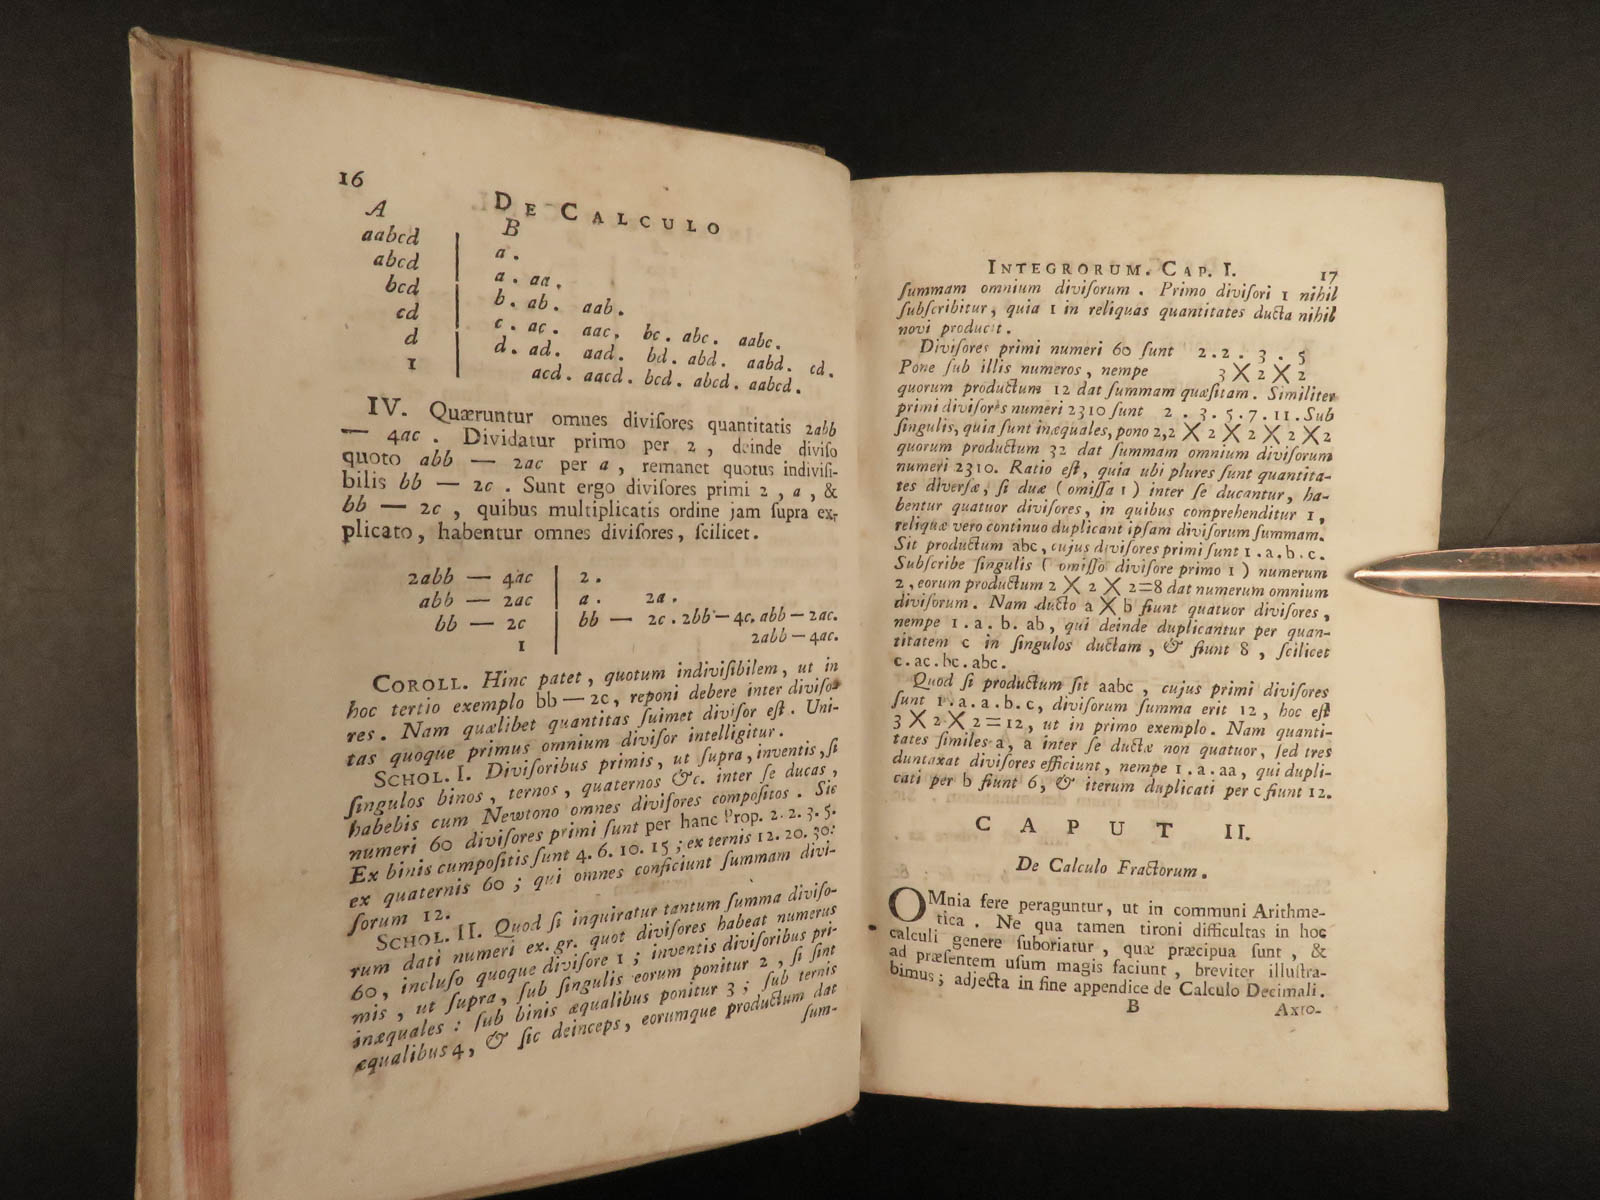 16
DE CALCULO
A B
aabcd a .
abcd a . aa .
bcd b . ab . aab .
cd c . ac . aac . bc . abc . aabc .
d d . ad . aad . bd . abd . aabd . cd .
1 acd . aacd . bcd . abcd . aabcd .
IV. Quæruntur omnes diviſores quantitatis 2abb
— 4ac . Dividatur primo per 2 , deinde diviſo
quoto abb — 2ac per a , remanet quotus indiviſi-
bilis bb — 2c . Sunt ergo diviſores primi 2 , a , &
bb — 2c , quibus multiplicatis ordine jam ſupra ex-
plicato, habentur omnes diviſores, ſcilicet.
2abb — 4ac 2 .
abb — 2ac a . 2a .
bb — 2c bb — 2c . 2bb — 4c. abb — 2ac.
1 2abb — 4ac.
COROLL. Hinc patet, quotum indiviſibilem, ut in
hoc tertio exemplo bb — 2c, reponi debere inter diviſo-
res . Nam quælibet quantitas ſuimet diviſor eſt . Uni-
tas quoque primus omnium diviſor intelligitur .
SCHOL. I. Diviſoribus primis, ut ſupra, inventis, ſi
ſingulos binos, ternos, quaternos &c. inter ſe ducas,
habebis cum Newtono omnes diviſores compoſitos . Sic
numeri 60 diviſores primi ſunt per hanc Prop. 2. 2. 3. 5.
Ex binis cumpoſitis ſunt 4. 6. 10. 15 ; ex ternis 12. 20. 30:
ex quaternis 60 ; qui omnes conficiunt ſummam divi-
ſorum 12.
SCHOL. II. Quod ſi inquiratur tantum ſumma diviſo-
rum dati numeri ex. gr. quot diviſores habeat numerus
60, incluſo quoque diviſore 1 ; inventis diviſoribus pri-
mis , ut ſupra, ſub ſingulis eorum ponitur 2 , ſi ſint
inæquales : ſub binis æqualibus ponitur 3 ; ſub ternis
æqualibus 4, & ſic deinceps, eorumque productum dat
ſum-
INTEGRORUM. CAP. I. 17
ſummam omnium diviſorum . Primo diviſori 1 nihil
ſubſcribitur, quia 1 in reliquas quantitates ducta nihil
novi producit .
Diviſores primi numeri 60 ſunt 2 . 2 . 3 . 5
Pone ſub illis numeros, nempe 3 X 2 X 2
quorum productum 12 dat ſummam quæſitam. Similiter
primi diviſores numeri 2310 ſunt 2 . 3 . 5 . 7 . 11 . Sub
ſingulis, quia ſunt inæquales, pono 2,2 X 2 X 2 X 2 X 2
quorum productum 32 dat ſummam omnium diviſorum
numeri 2310. Ratio eſt, quia ubi plures ſunt quantita-
tes diverſæ, ſi duæ ( omiſſa 1 ) inter ſe ducantur, ha-
bentur quatuor diviſores, in quibus comprehenditur 1,
reliquæ vero continuo duplicant ipſam diviſorum ſummam.
Sit productum abc, cujus diviſores primi ſunt 1 . a . b . c .
Subſcribe ſingulis ( omiſſo diviſore primo 1 ) numerum
2, eorum productum 2 X 2 X 2=8 dat numerum omnium
diviſorum . Nam ducto a X b fiunt quatuor diviſores,
nempe 1 . a . b . ab , qui deinde duplicantur per quan-
titatem c in ſingulos ductam , & fiunt 8 , ſcilicet
c . ac . bc . abc .
Quod ſi productum ſit aabc , cujus primi diviſores
ſunt 1 . a . a . b . c, diviſorum ſumma erit 12 , hoc eſt
3 X 2 X 2 = 12, ut in primo exemplo. Nam quanti-
tates ſimiles a, a inter ſe ductæ non quatuor, ſed tres
duntaxat diviſores efficiunt, nempe 1 . a . aa, qui dupli-
cati per b fiunt 6, & iterum duplicati per c fiunt 12.
CAPUT II.
De Calculo Fractorum .
OMnia fere peraguntur, ut in communi Arithme-
tica . Ne qua tamen tironi difficultas in hoc
calculi genere ſuboriatur , quæ præcipua ſunt , &
ad præſentem uſum magis faciunt , breviter illuſtra-
bimus ; adjecta in fine appendice de Calculo Decimali .
B Axio-